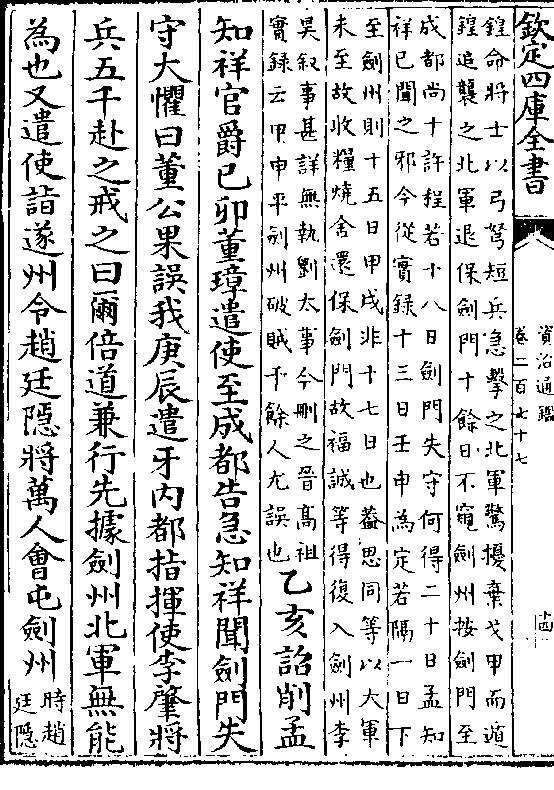 欽定四庫全書
資治通鑑
卷二百七十七
十四
鍠命將士以弓弩短兵急擊之北軍驚擾棄戈甲而遁
鍠追襲之北軍退保劍門十餘日不窺劍州按劍門至
成都尚十許程若十八日劍門失守何得二十日孟知
祥已聞之邪今從實録十三日壬申為定若隔一日下
至劍州則十五日甲戌非十七日也葢思同等以大軍
未至故收糧燒舍還保劍門故福誠等得復入劍州李
昊叙事甚詳無執劉太事今刪之晉髙祖
實録云甲申平劍州破賊千餘人尤誤也
乙亥詔削孟
知祥官爵己卯董璋遣使至成都告急知祥聞劍門失
守大懼曰董公果誤我庚辰遣牙内都指揮使李肇將
兵五千赴之戒之曰爾倍道兼行先據劍州北軍無能
為也又遣使詣遂州令趙廷隠將萬人會屯劍州
時趙
廷隠